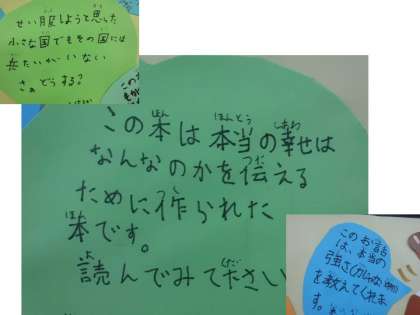 せい服しようと思した
小さな国でもその国には
兵たいがいない
さぁどうする?
この本は本当の幸せは
なんなのかを伝える
ために作られた
本です。
読んでみてください
このお話
は、本当の
強さ(力じゃない
を教えてくれま
す。